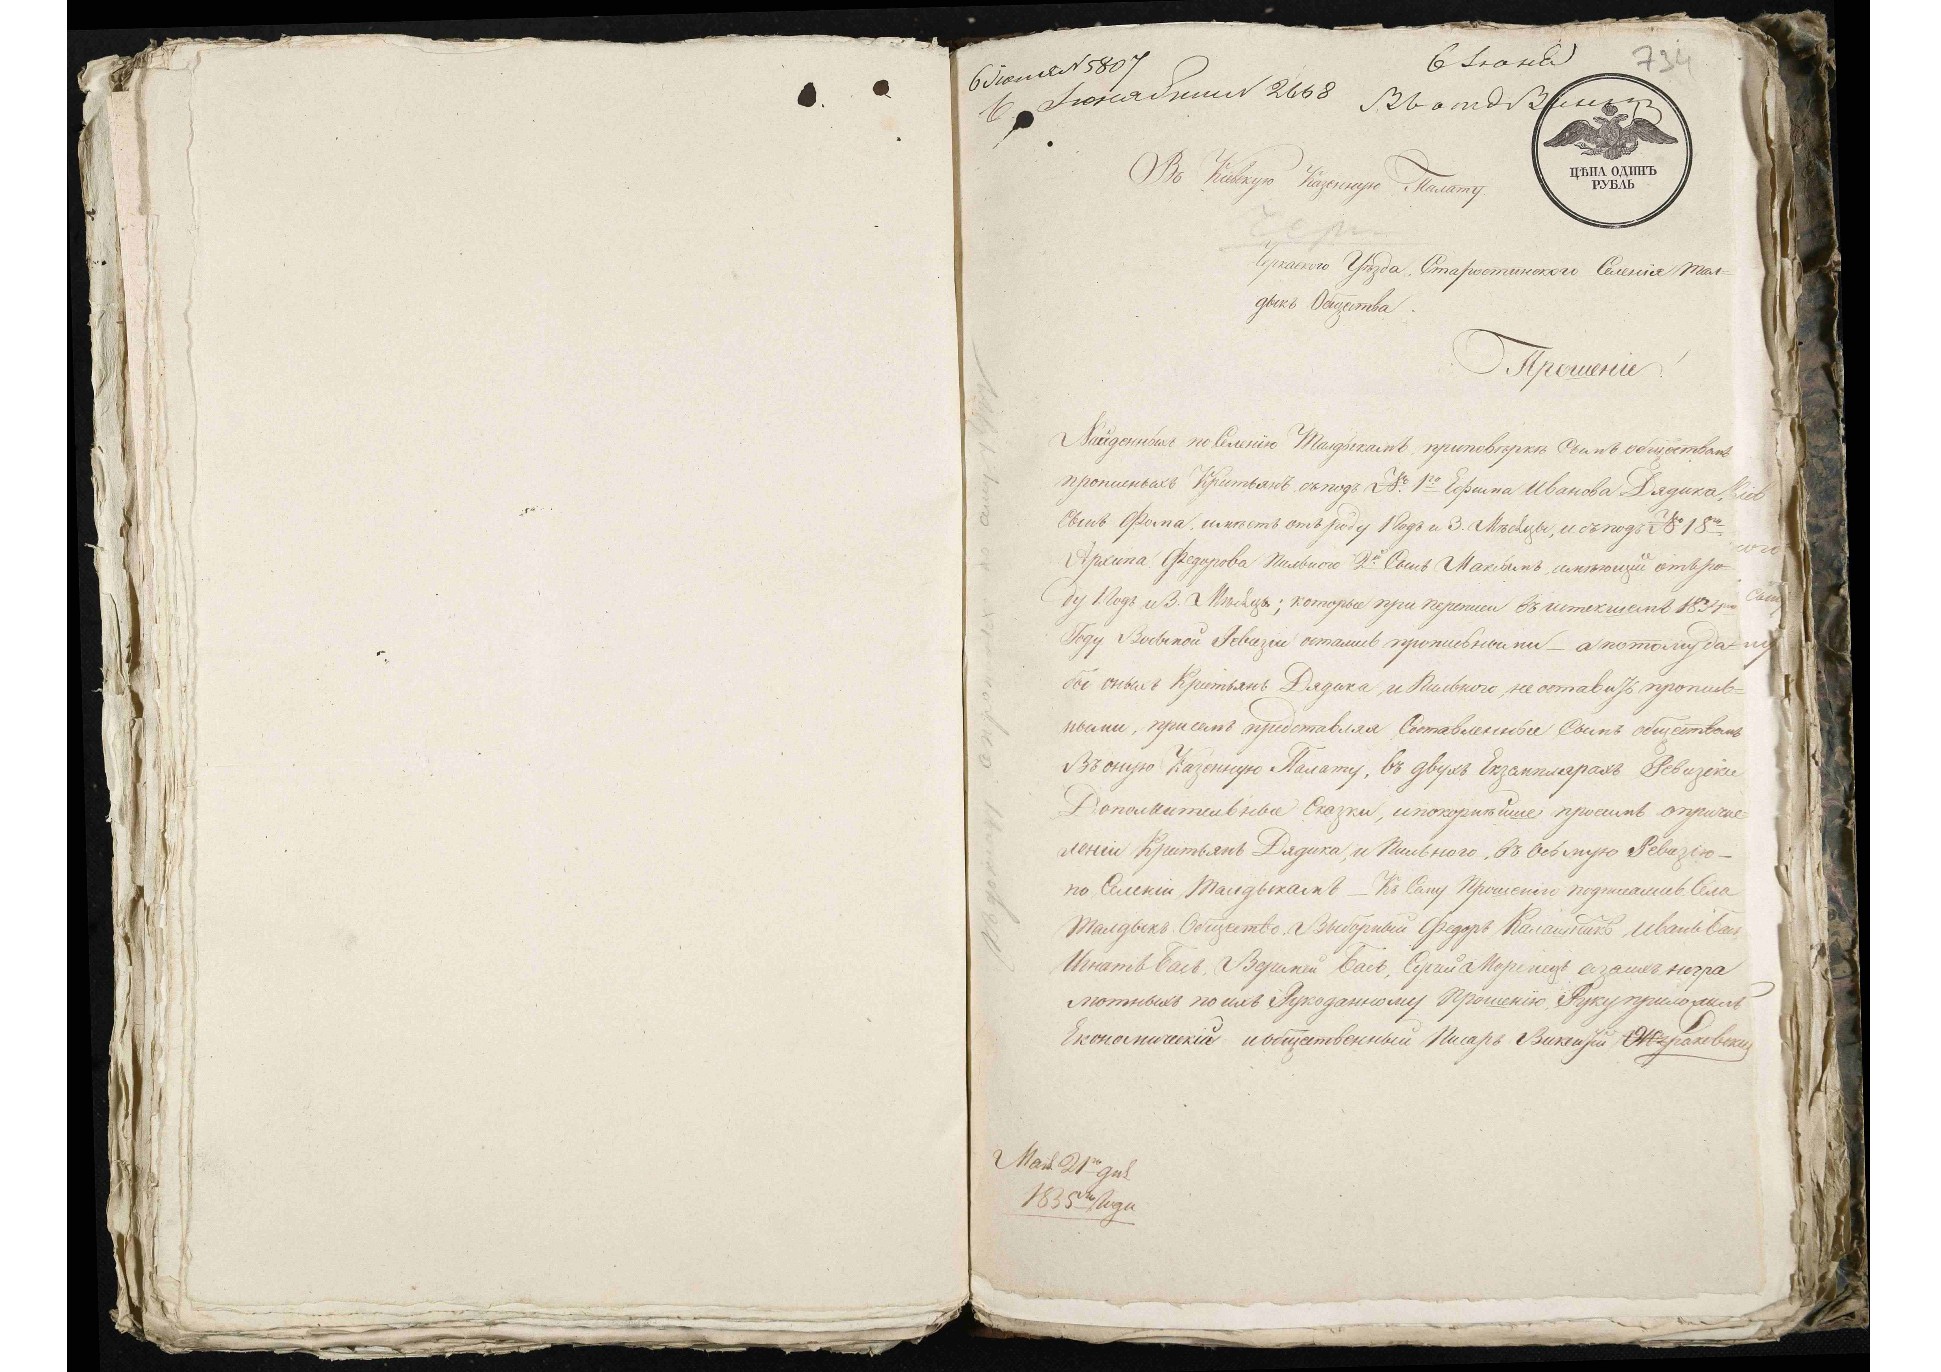 6 Июня N 5807
6 Июня 2668
6 Июня
734
ЦѢНА ОДИНЪ
РУБЛЬ
Въ Кіевскую Казенную Палату
Черкаского Уѣзда, Старостинского Селенія Мал-
дыкъ Общества.
Прошеніе!
Найденныхъ по Селенію Малдыкамъ приповѣркѣ Симъ обществомъ
прописныхъ Кретьянъ, съ подъ № 1го Ефима Иванова Дядика,
Сынъ Фома, имѣетъ отъ роду 1 Годъ и 3. Мѣсяцы, и съ подъ № 18го
Архипа Федорова Пильного 2й Сынъ Максимъ, имѣющій отъ ро-
ду 1 Годъ и 3. Мѣсяцъ; которые при переписи въ истекшемъ 1834мъ
Году Восьмой Ревизіи остались прописными — а потому да-
бы оныхъ Кретьянъ Дядика, и Пильного, не оставить пропис-
ными, при семъ представляя Составленные Симъ обществомъ
Въ оную Казенную Палату, въ двухъ Екземплярахъ Ревизскіе
Дополнительные Сказки, и покорнѣйше просимъ опричис-
леніи Кретьянъ Дядика, и Пильного, въ восьмую Ревизію —
по Селеніи Малдыкамъ — Къ Сему Прошенію подписались Села
Малдыкъ Общество, Выборный Федоръ Калашникъ, Иванъ Бась
Игнатъ Бась, Бась, Сергій а за ихъ негра
мотныхъ по ихъ Рукоданному Прошенію, Руку приложилъ
Економическій и общественный Писарь Викентій
Мая 21го дня
1835го Года